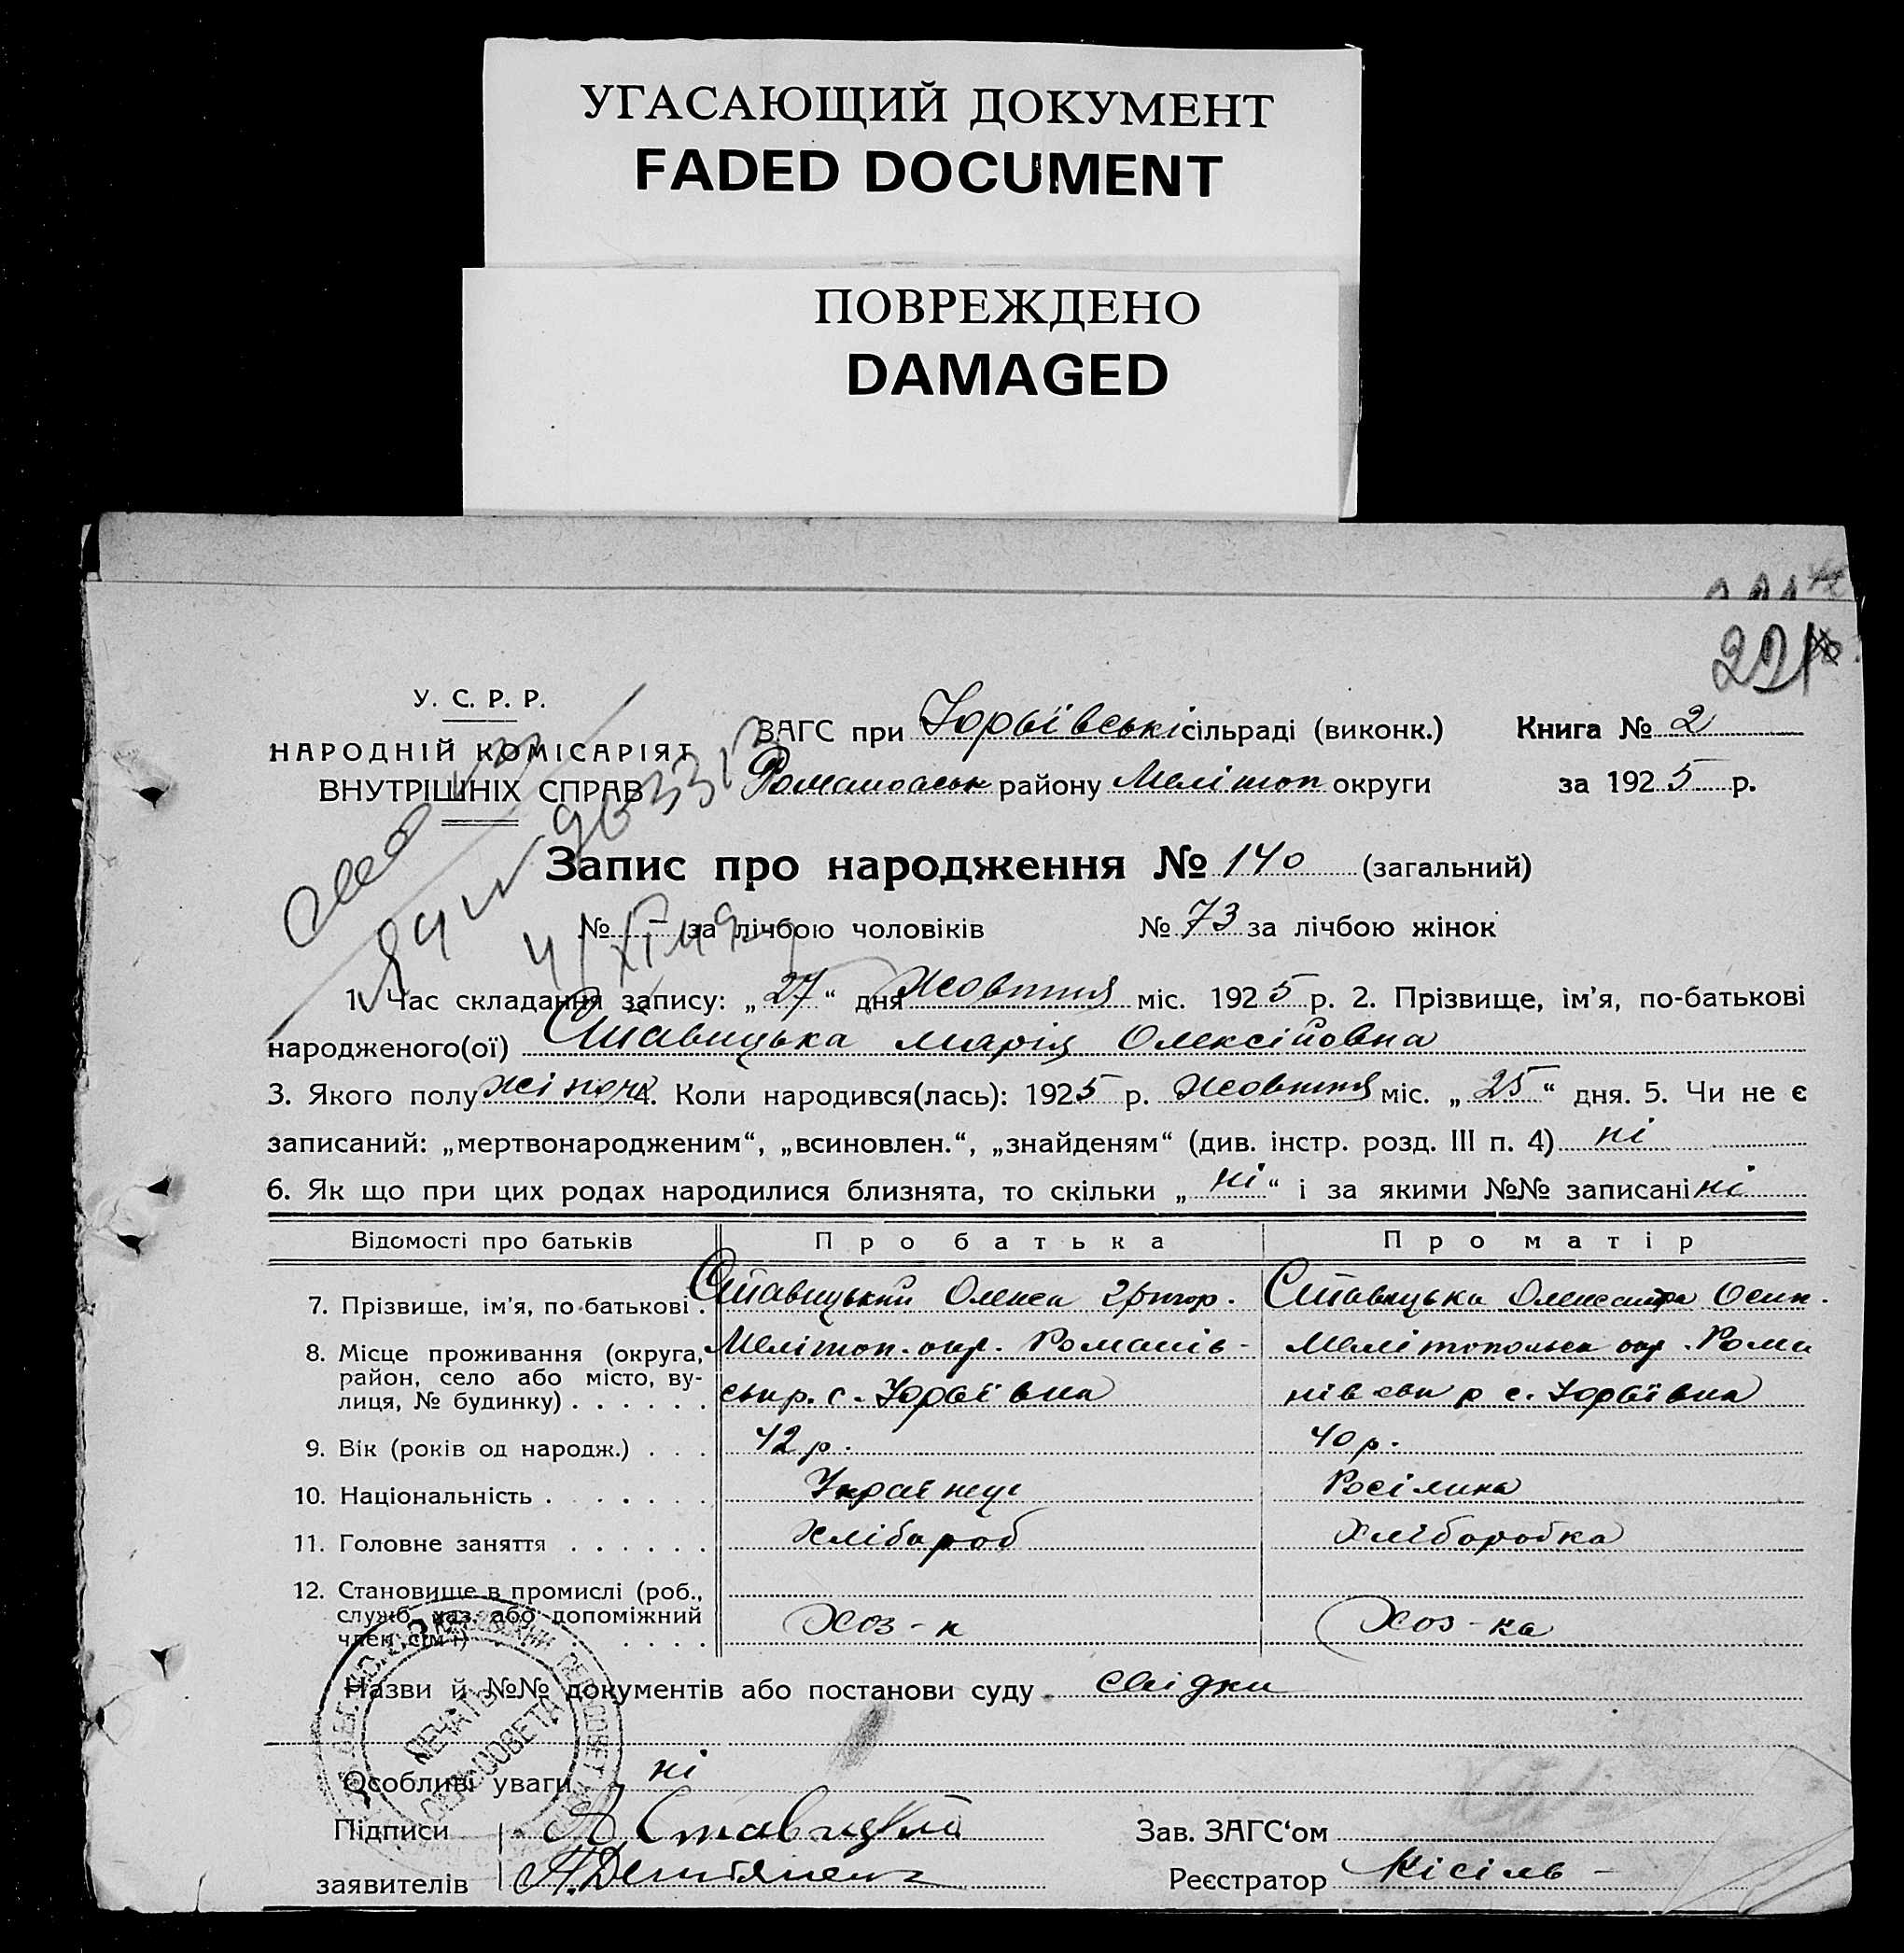 УГАСАЮЩИЙ ДОКУМЕНТ
FADED DOCUMENT
ПОВРЕЖДЕНО
DAMAGED
221
У. С. Р. Р.
НАРОДНІЙ КОМІСАРІЯТ
ВНУТРІШНІХ СПРАВ
ЗАГС при Юрьївські сільраді (виконк.) Книга № 2
Романовськ району Мелітоп округи за 1925 р.
Запис про народження № 140 (загальний)
№ — за лічбою чоловіків № 73 за лічбою жінок
1. Час складання запису: „27“ дня Жовтня міс. 1925 р. 2. Прізвище, ім’я, по-батькові
народженого(ої) Ставицька Марія Олексійовна
3. Якого полу жіноч. 4. Коли народився(лась): 1925 р. Жовтня міс. „25“ дня. 5. Чи не є
записаний: „мертвонародженим“, „всиновлен.“, „знайденям“ (див. інстр. розд. III п. 4) ні
6. Як що при цих родах народилися близнята, то скільки „ні“ і за якими №№ записані ні
Відомості про батьків Про батька Про матір
7. Прізвище, ім’я, по-батькові. Ставицький Олекса Григор. Ставицька Олександра Осип.
8. Місце проживання (округа, Мелітоп. окр. Романів- Мелітопольск окр. Рома
район, село або місто, ву-
лиця, № будинку) . . . . . . ськ р. с. Юрьївка нівськ р с. Юрьївка
9. Вік (років од народж.) . . . 42 р. 40 р.
10. Національність . . . . . . Українец Росіянка
11. Головне заняття . . . . . . Хлібароб Хліборобка
12. Становище в промислі (роб.,
служб, хаз. або допоміжний
член сім'ї) . . . . Хоз-н Хоз-ка
Назви й №№ документів або постанови суду . свідки
Особливі уваги ні
ПЕЧАТЬ
СЕЛЬСОВЕТА
Підписи А Ставицкий Зав. ЗАГС‘ом
заявителів Реєстратор Кісіль